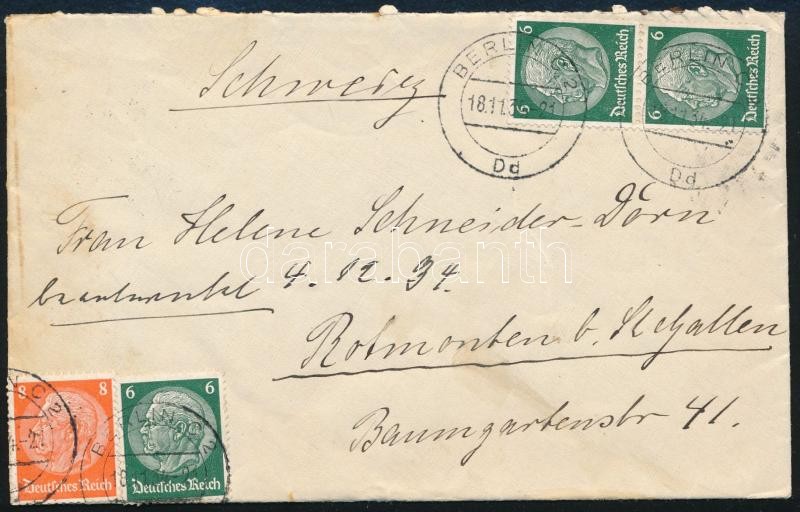 6
Deutsches Reich
6
Deutsches Reich
BERLIN C2
18.11.3
21
Dd
BERLIN C
Dd
Schweiz
Frau Helene Schneider-Dörn
beantwortet 4.12.34
Rotmonten b. St. Gallen
Baumgartenstr 41.
darabanth
8
8
Deutsches Reich
6
6
Deutsches Reich
C2
BERLIN C2